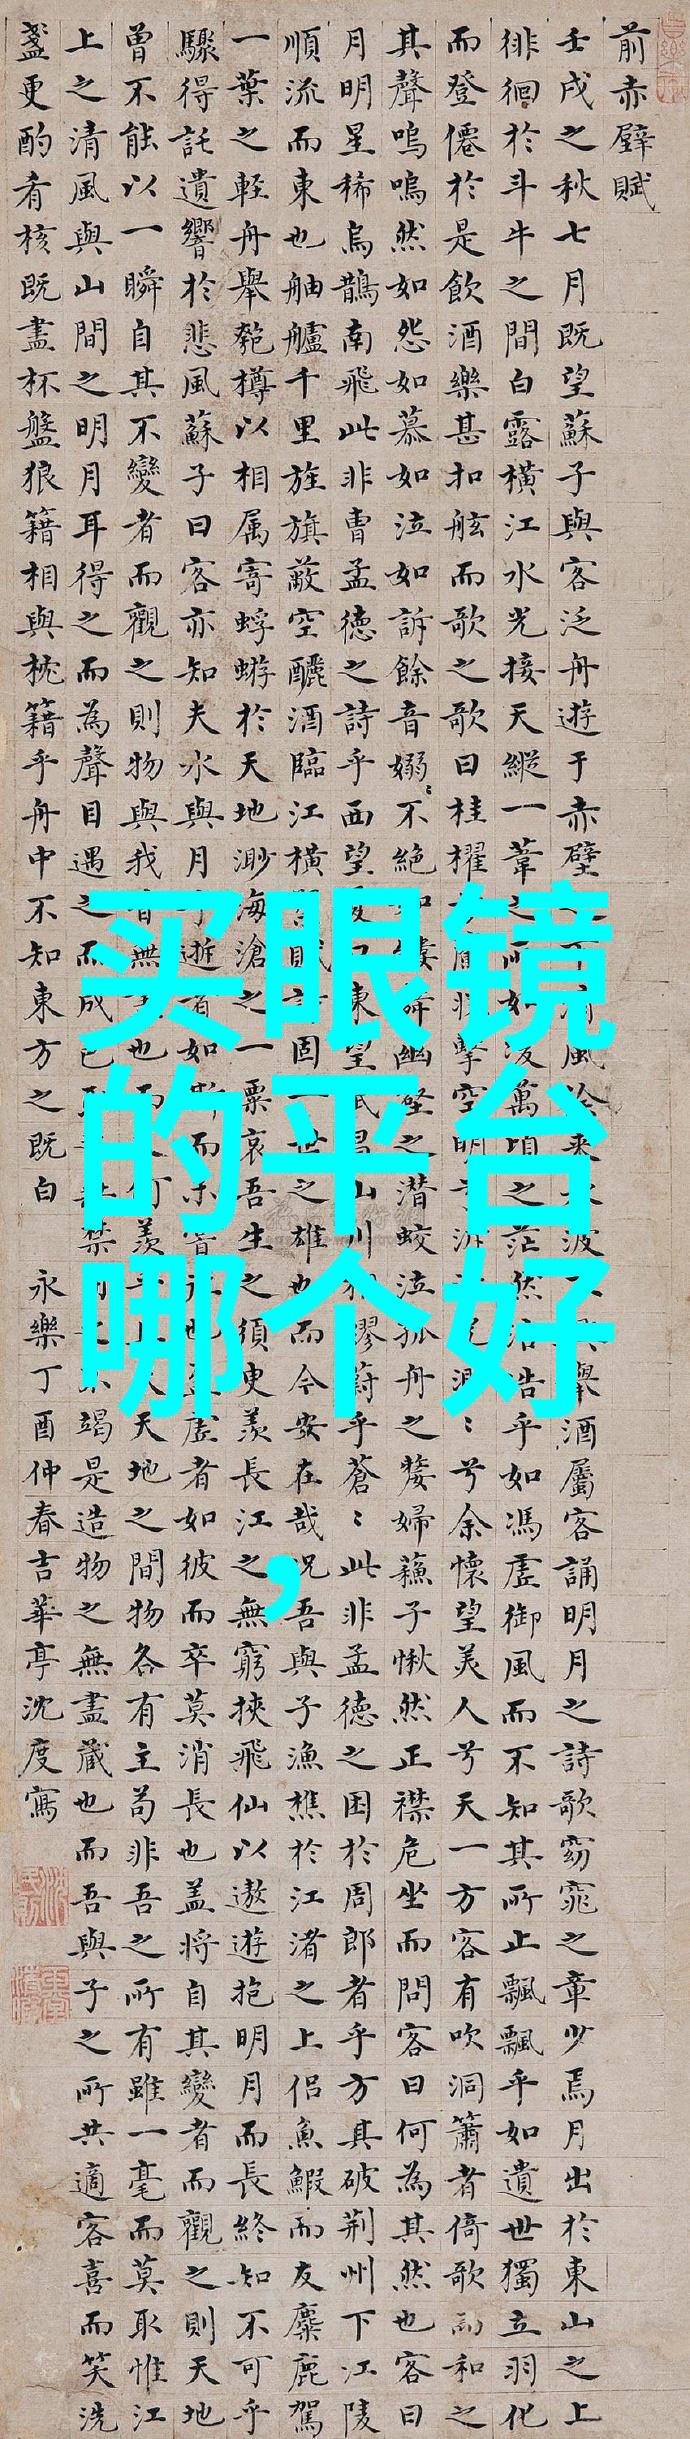 前赤壁賦
壬戌之秋七月既望蘇子與客泛舟遊于赤壁風徐来水波興舉酒屬客誦明月之詩歌窈窕之章少焉月出於東山之上
徘徊於斗牛之間白露橫江水光接天縱一葦之所如淩萬頃之茫然浩浩乎如馮虛御風而不知其所止飄飄乎如遺世獨立羽化
而登僊於是飲酒樂甚扣舷而歌之歌曰桂櫂擊空明兮泝〻兮余懷望美人兮天一方客有吹洞簫者倚歌而和之
其聲嗚嗚然如怨如慕如泣如訴餘音嫋〻不絕如縷舞幽壑之潛蛟泣孤舟之嫠婦蘇子愀然正襟危坐而問客曰何為其然也客曰
月明星稀烏鵲南飛此非曹孟德之詩乎西望夏口東望武昌山川相繆蔚乎蒼〻此非孟德之困於周郎者乎方其破荆州下江陵
順流而東也舳艫千里旌旗蔽空釃酒臨江橫槊賦詩固一世之雄也而今安在哉况吾與子漁樵於江渚之上侶魚鰕而友麋鹿駕
一葉之輕舟舉匏樽以相属寄蜉蝣於天地渺海滄之一粟哀吾生之須臾羨長江之無窮挾飛仙以遨遊抱明月而長終知不可乎
驟得託遺響於悲風蘇子曰客亦知夫水與月乎逝者如斯而未嘗往也盈虛者如彼而卒莫消長也盖將自其變者而觀之則天地
曾不能以一瞬自其不變者而觀之則物與我皆無盡也而又何羨乎且夫天地之間物各有主苟非吾之所有雖一毫而莫取惟江
上之清風與山間之明月耳得之而為聲目遇之而成色取之無禁用之不竭是造物之無盡藏也而吾與子之所共適客喜而笑洗
盞更酌肴核既盡杯盤狼籍相與枕籍乎舟中不知東方之既白 永樂丁酉仲春吉華亭沈度寫
买眼镜
的平台
哪个好
,